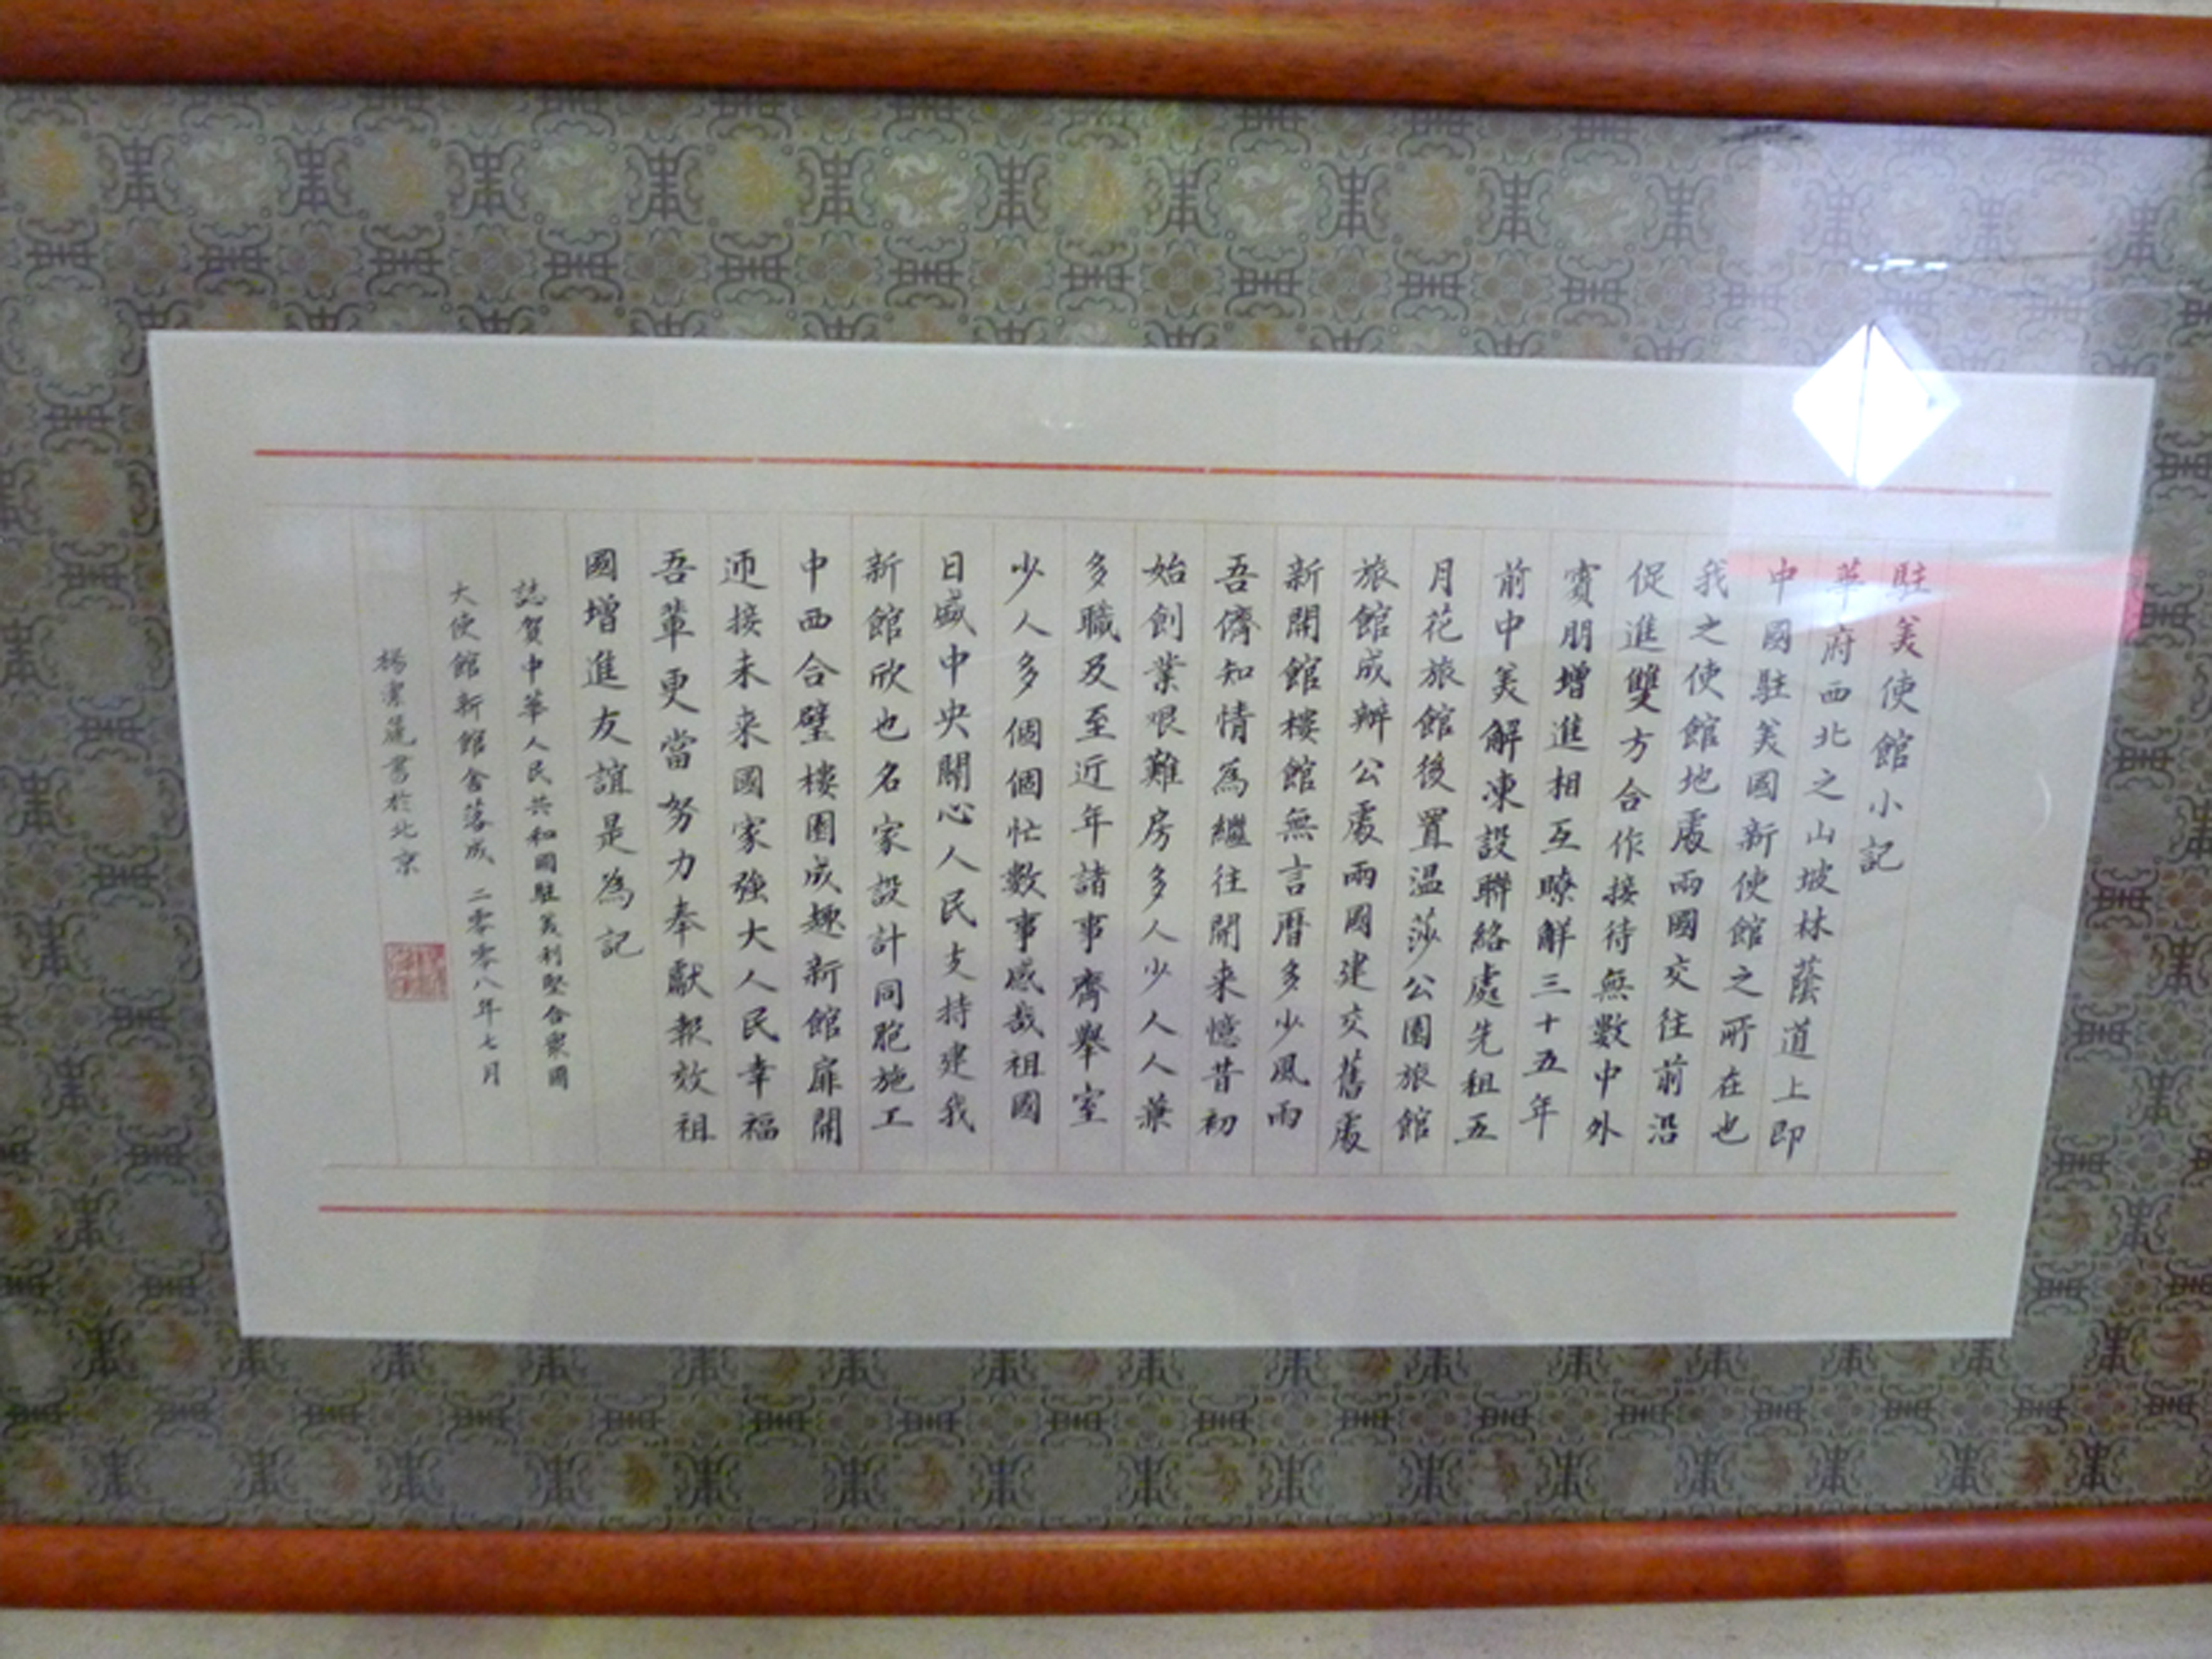 駐美使館小記
華府西北之山坡林蔭道上即
中國駐美國新使館之所在也
我之使館地處兩國交往前沿
促進雙方合作接待無數中外
賓朋增進相互瞭解三十五年
前中美解凍設聯絡處先租五
月花旅館後置温莎公園旅館
旅館成辦公處兩國建交舊處
新開館樓館無言曆多少風雨
吾儕知情為繼往開来憶昔初
始創業艰難房多人少人人兼
多職及至近年諸事齊舉室
少人多個個忙數事感哉祖國
日盛中央關心人民支持建我
新館欣也名家設計同胞施工
中西合璧樓園成趣新館扉開
迊接未来國家強大人民幸福
吾輩更當努力奉獻報效祖
國增進友誼是為記
誌賀中華人民共和國駐美利堅合衆國
大使館新館舍落成 二零零八年七月
楊潔篪書於北京